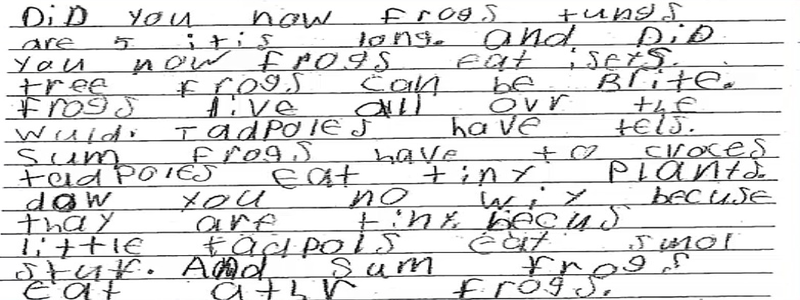 DiD you now frogs tungs
are 5 itis long. and DiD
you now frogs eat isets.
tree frogs can be Brite.
frogs live all ovr the
wuld. Tadpoles have tels.
Sum frogs have to croces
tadpoles eat tiny plants.
dow you no wiy becuse
thay are tiny. becus
little tadpols eat smol
stuf. And sum frogs
eat athr frogs.